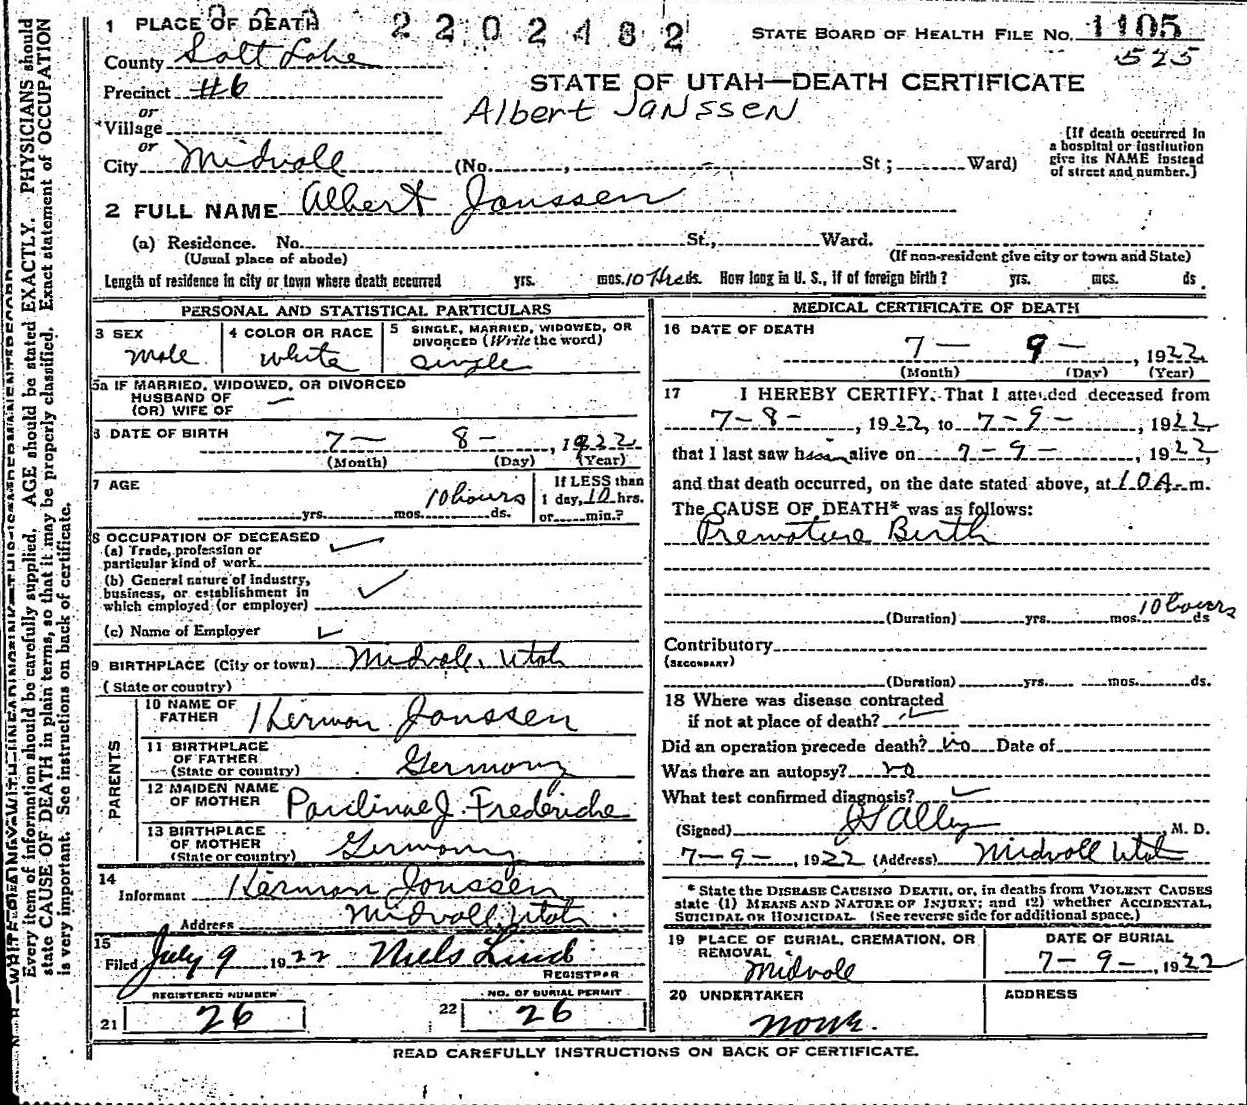 2202482
STATE BOARD OF HEALTH FILE NO. 1105
525
1 PLACE OF DEATH
County Salt Lake
Precinct #6
or
Village
or
City Midvale (No. , St; Ward)
STATE OF UTAH—DEATH CERTIFICATE
Albert Janssen
[If death occurred in
a hospital or institution
give its NAME instead
of street and number.]
2 FULL NAME Albert Janssen
(a) Residence. No. St., Ward.
(Usual place of abode) (If non-resident give city or town and State)
Length of residence in city or town where death occurred yrs. mos. 10 Hrs ds. How long in U. S., if of foreign birth? yrs. mos. ds.
PERSONAL AND STATISTICAL PARTICULARS
3 SEX
Male
4 COLOR OR RACE
White
5 SINGLE, MARRIED, WIDOWED, OR
DIVORCED (Write the word)
Single
5a IF MARRIED, WIDOWED, OR DIVORCED
HUSBAND OF
(OR) WIFE OF —
6 DATE OF BIRTH 7— 8—, 1922
(Month) (Day) (Year)
7 AGE
yrs. mos. 10 hours ds.
If LESS than
1 day, 10 hrs.
or min.?
8 OCCUPATION OF DECEASED
(a) Trade, profession or
particular kind of work
(b) General nature of industry,
business, or establishment in
which employed (or employer)
(c) Name of Employer
9 BIRTHPLACE (City or town) Midvale, Utah
(State or country)
PARENTS
10 NAME OF
FATHER Herman Janssen
11 BIRTHPLACE
OF FATHER
(State or country) Germany
12 MAIDEN NAME
OF MOTHER J. Frederiche
13 BIRTHPLACE
OF MOTHER
(State or country) Germany
14
Informant Herman Janssen
Address Midvale, Utah
15
Filed July 9 1922 Niels Lind
REGISTRAR
REGISTERED NUMBER
21 26
NO. OF BURIAL PERMIT
22 26
MEDICAL CERTIFICATE OF DEATH
16 DATE OF DEATH
7— 9—, 1922
(Month) (Day) (Year)
17 I HEREBY CERTIFY, That I attended deceased from
7-8-, 1922, to 7-9-, 1922
that I last saw him alive on 7-9-, 1922,
and that death occurred, on the date stated above, at 10A.m.
The CAUSE OF DEATH* was as follows:
Premature Birth
(Duration) yrs. mos. 10 hours ds
Contributory
(SECONDARY)
(Duration) yrs. mos. ds.
18 Where was disease contracted
if not at place of death?
Did an operation precede death? no Date of
Was there an autopsy? no
What test confirmed diagnosis?
(Signed) , M. D.
7-9-, 1922 (Address) Midvale Utah
* State the DISEASE CAUSING DEATH, or, in deaths from VIOLENT CAUSES
state (1) MEANS AND NATURE OF INJURY; and (2) whether ACCIDENTAL,
SUICIDAL OR HOMICIDAL. (See reverse side for additional space.)
19 PLACE OF BURIAL, CREMATION, OR
REMOVAL
Midvale
DATE OF BURIAL
7-9-, 1922
20 UNDERTAKER
none.
ADDRESS
READ CAREFULLY INSTRUCTIONS ON BACK OF CERTIFICATE.
Every item of information should be carefully supplied. AGE should be stated EXACTLY. PHYSICIANS should
state CAUSE OF DEATH in plain terms, so that it may be properly classified. Exact statement of OCCUPATION
is very important. See instructions on back of certificate.